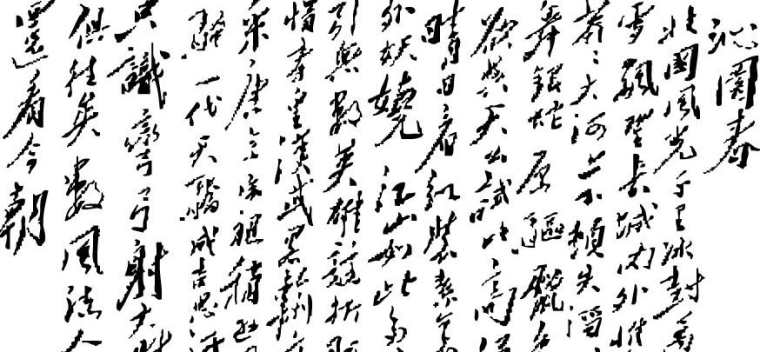 沁園春
北國風光千里冰封
雪飄望長城内外惟
莽〻大河上下頓失滔
舞銀蛇原驅臘
欲與天公試比高
晴日看紅裝素
外妖嬈江山如此多
引無數英雄競折
惜秦皇漢武略輸
采唐宗宋祖稍
騷一代天驕成吉思汗
只識彎弓射大
俱往矣數風流人
還看今朝